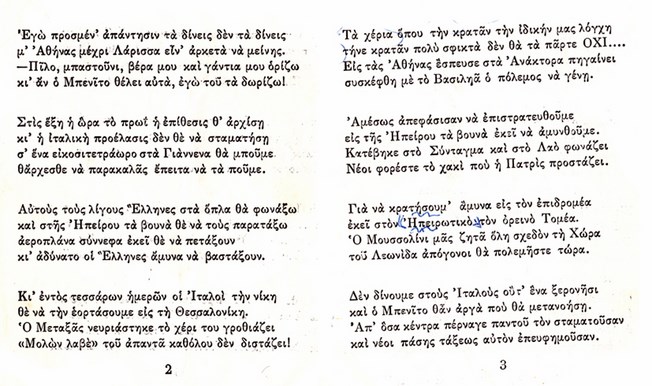 Ἐγὼ προσμέν' ἀπάντησιν τὰ δίνεις δὲν τὰ δίνεις
μ' Ἀθήνας μέχρι Λάρισσα εἶν' ἀρκετὰ νὰ μείνης.
—Πῖλο, μπαστοῦνι, βέρα μου καὶ γάντια μου ὁρίζω
κι' ἂν ὁ Μπενῖτο θέλει αὐτά, ἐγὼ τοῦ τὰ δωρίζω!
Στὶς ἕξη ἡ ὥρα τὸ πρωῒ ἡ ἐπίθεσις θ' ἀρχίση
κι' ἡ ἰταλικὴ προέλασις δὲν θὲ νὰ σταματήση
σ' ἕνα εἰκοσιτετράωρο στὰ Γιάννενα θὰ μποῦμε
θἄρχεσθε νὰ παρακαλᾶς ἔπειτα νὰ τὰ ποῦμε.
Αὐτοὺς τοὺς λίγους Ἕλληνες στὰ ὅπλα θὰ φωνάξω
καὶ στῆς Ἠπείρου τὰ βουνὰ θὲ νὰ τοὺς παρατάξω
ἀεροπλάνα σύννεφα ἐκεῖ θὲ νὰ πετάξουν
κι' ἀδύνατο οἱ Ἕλληνες ἄμυνα νὰ βαστάξουν.
Κι' ἐντὸς τεσσάρων ἡμερῶν οἱ Ἰταλοὶ τὴν νίκη
θὲ νὰ τὴν ἑορτάσουμε εἰς τὴ Θεσσαλονίκη.
Ὁ Μεταξᾶς νευριάστηκε τὸ χέρι του γροθιάζει
«Μολὼν λαβὲ» τοῦ ἀπαντᾶ καθόλου δὲν διστάζει!
2
Τὰ χέρια ὅπου τὴν κρατᾶν τὴν ἰδικήν μας λόγχη
τήνε κρατᾶν πολὺ σφικτὰ δὲν θὰ τὰ πάρτε ΟΧΙ....
Εἰς τὰς Ἀθήνας ἔσπευσε στὰ Ἀνάκτορα πηγαίνει
συσκέφθη μὲ τὸ Βασιληᾶ ὁ πόλεμος νὰ γένη.
Ἀμέσως ἀπεφάσισαν νὰ ἐπιστρατευθοῦμε
εἰς τῆς Ἠπείρου τὰ βουνὰ ἐκεῖ νὰ ἀμυνθοῦμε.
Κατέβηκε στὸ Σύνταγμα καὶ στὸ Λαὸ φωνάζει
Νέοι φορέστε τὸ χακὶ ποὺ ἡ Πατρὶς προστάζει.
Γιὰ νὰ κρατήσουμ' ἄμυνα εἰς τὸν ἐπιδρομέα
ἐκεῖ στὸν Ἠπειρωτικὸ τὸν ὀρεινὸ Τομέα.
Ὁ Μουσσολίνι μᾶς ζητᾶ ὅλη σχεδὸν τὴ Χώρα
τοῦ Λεωνίδα ἀπόγονοι θὰ πολεμῆστε τώρα.
Δὲν δίνουμε στοὺς Ἰταλοὺς οὔτ' ἕνα ξερονῆσι
καὶ ὁ Μπενῖτο θἄν ἀργὰ ποὺ θὰ μετανοήση.
Ἀπ' ὅσα κέντρα πέρναγε παντοῦ τὸν σταματοῦσαν
καὶ νέοι πάσης τάξεως αὐτὸν ἐπευφημοῦσαν.
3